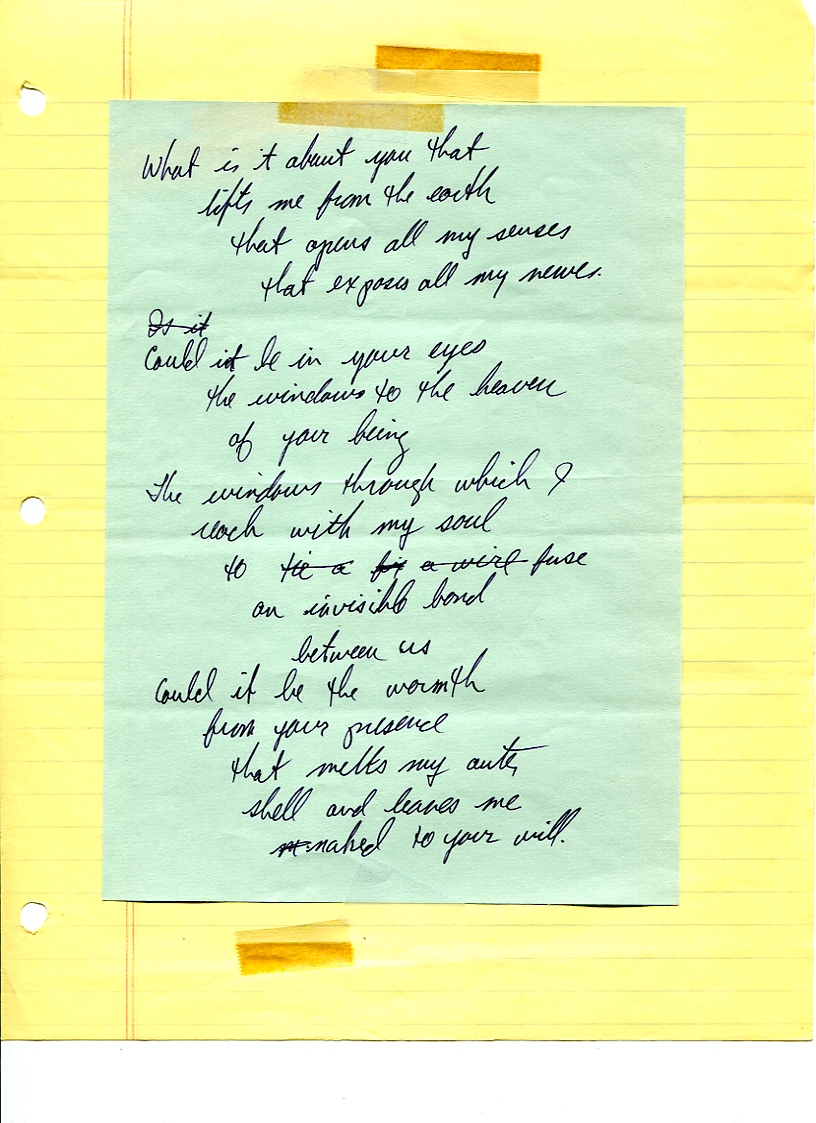 What is it about you that
lifts me from the earth
that opens all my senses
that exposes all my nerves.
Is it
Could it be in your eyes
the windows to the heaven
of your being
The windows through which I
reach with my soul
to tie a a wire fuse
an invisible bond
between us
Could it be the warmth
from your presence
that melts my outer
shell and leaves me
naked to your will.